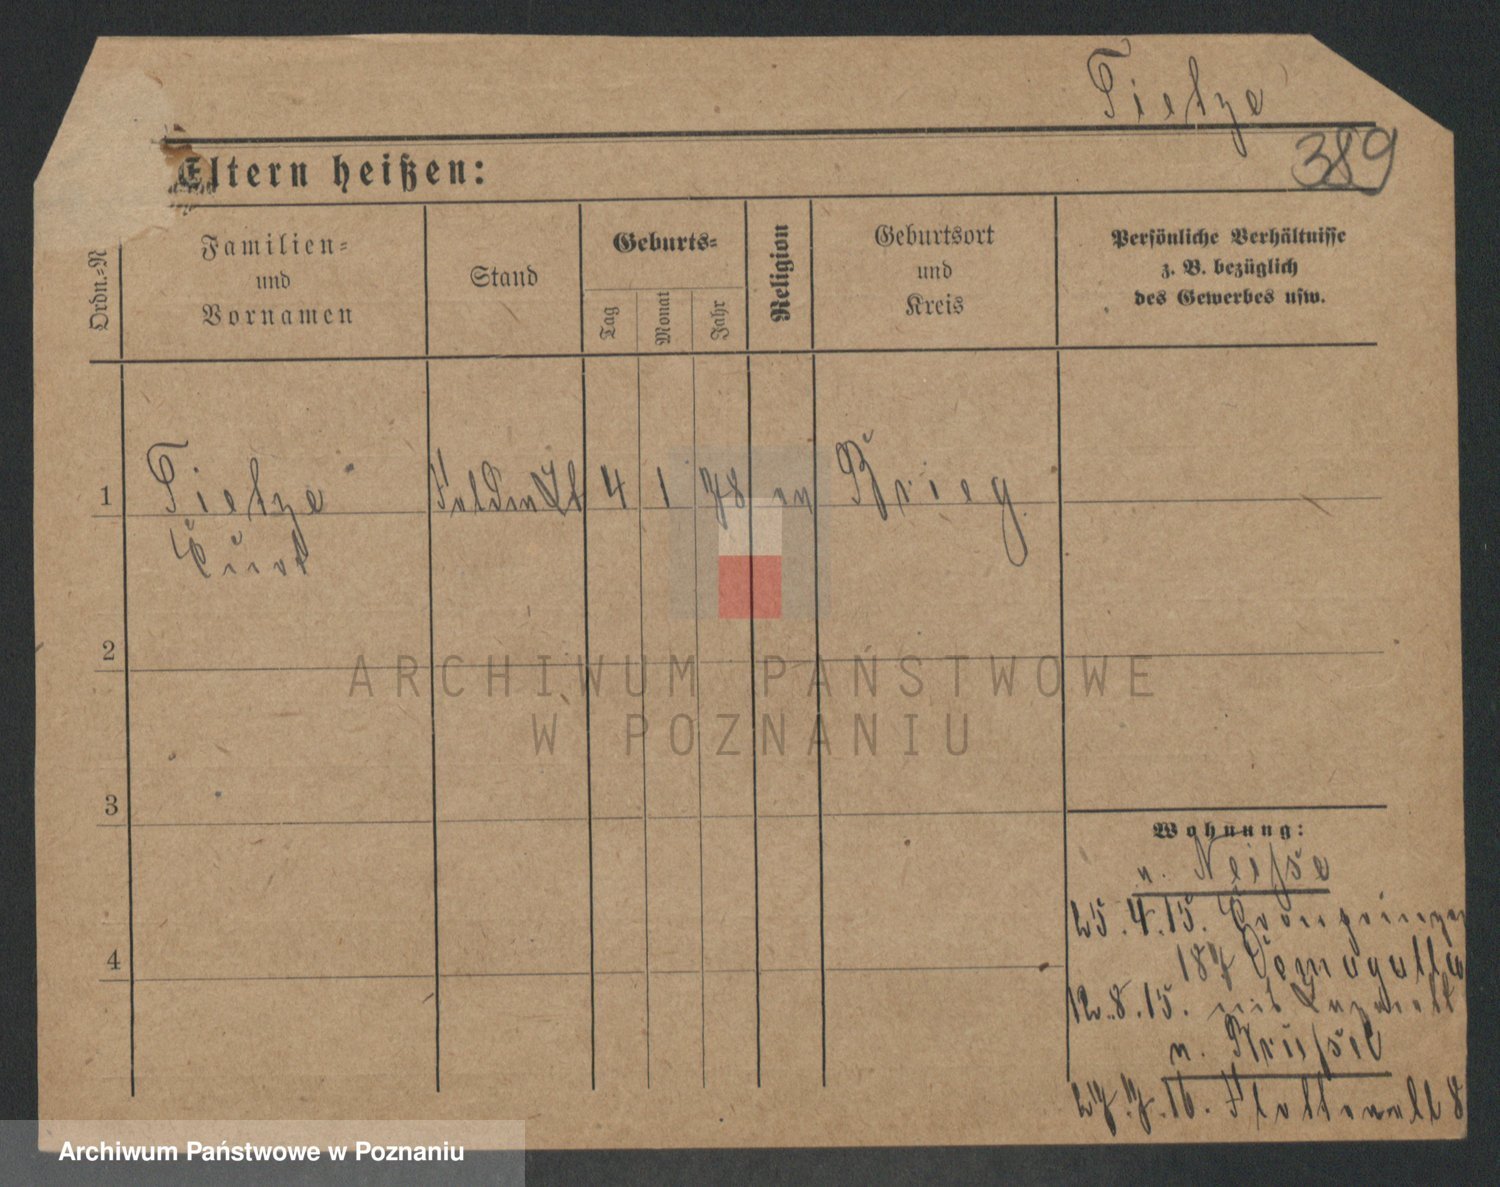 Tietze
389
Eltern heißen:
Ordn.-N
Familien-
und
Vornamen
Stand
Geburts-
Tag
Monat
Jahr
Religion
Geburtsort
und
Kreis
Persönliche Verhältnisse
z. B. bezüglich
des Gewerbes usw.
1 Tietze 4 1 78 ev Brieg
Kurt
2
ARCHIWUM PAŃSTWOWE
W POZNANIU
3
Wohnung:
n. Neisse
4
25.4.15. Kronprinzen
187
12.8.15. mit
n. Brüssel
27.7.16. Flottwell 8
Archiwum Państwowe w Poznaniu